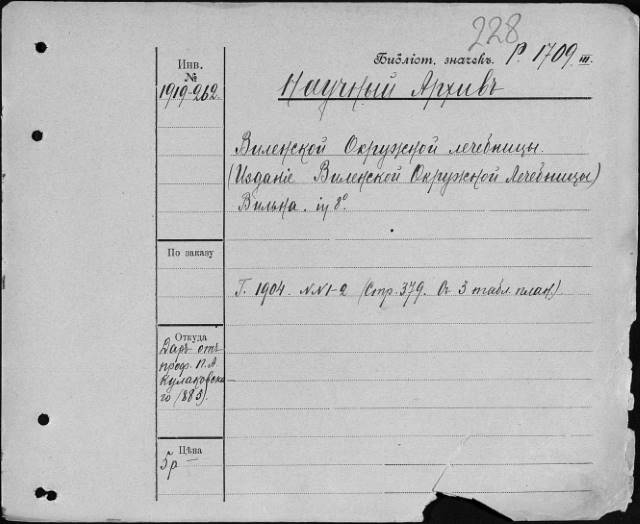 228
Библіот. значекъ. P. 1709. III.
Инв.
№
1919-262.
Научный Архивъ
Виленской Окружной лечебницы.
(Изданіе Виленской Окружной Лечебницы)
Вильна. in 8°
По заказу
Г. 1904. NN 1-2 (Стр. 379. Съ 3 табл. план.)
Откуда
Даръ отъ
проф. П. А
Кулаковска
го (885).
Цѣна
5р —